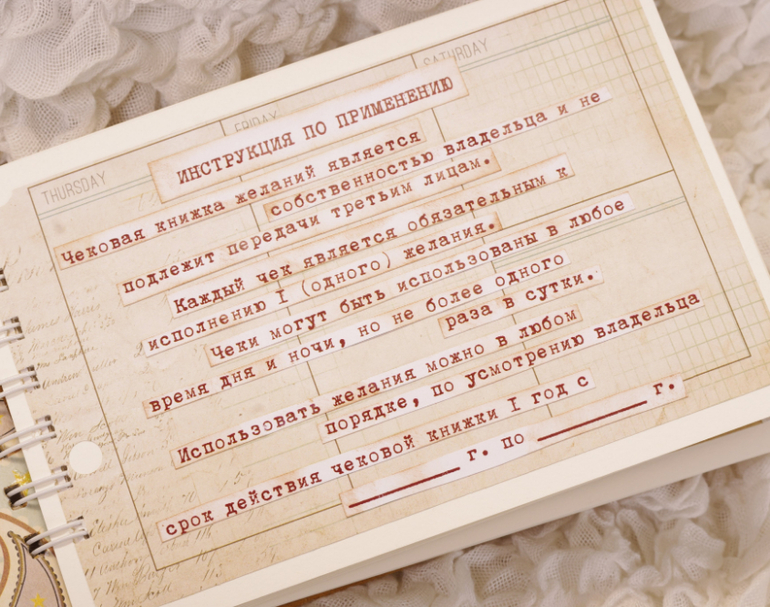 THURSDAY
FRIDAY
SATURDAY
ИНСТРУКЦИЯ ПО ПРИМЕНЕНИЮ
Чековая книжка желаний является
собственностью владельца и не
подлежит передачи третьим лицам.
Каждый чек является обязательным к
исполнению I (одного) желания.
Чеки могут быть использованы в любое
время дня и ночи, но не более одного
раза в сутки.
Использовать желания можно в любом
порядке, по усмотрению владельца
срок действия чековой книжки I год с
________ г. по ________ г.